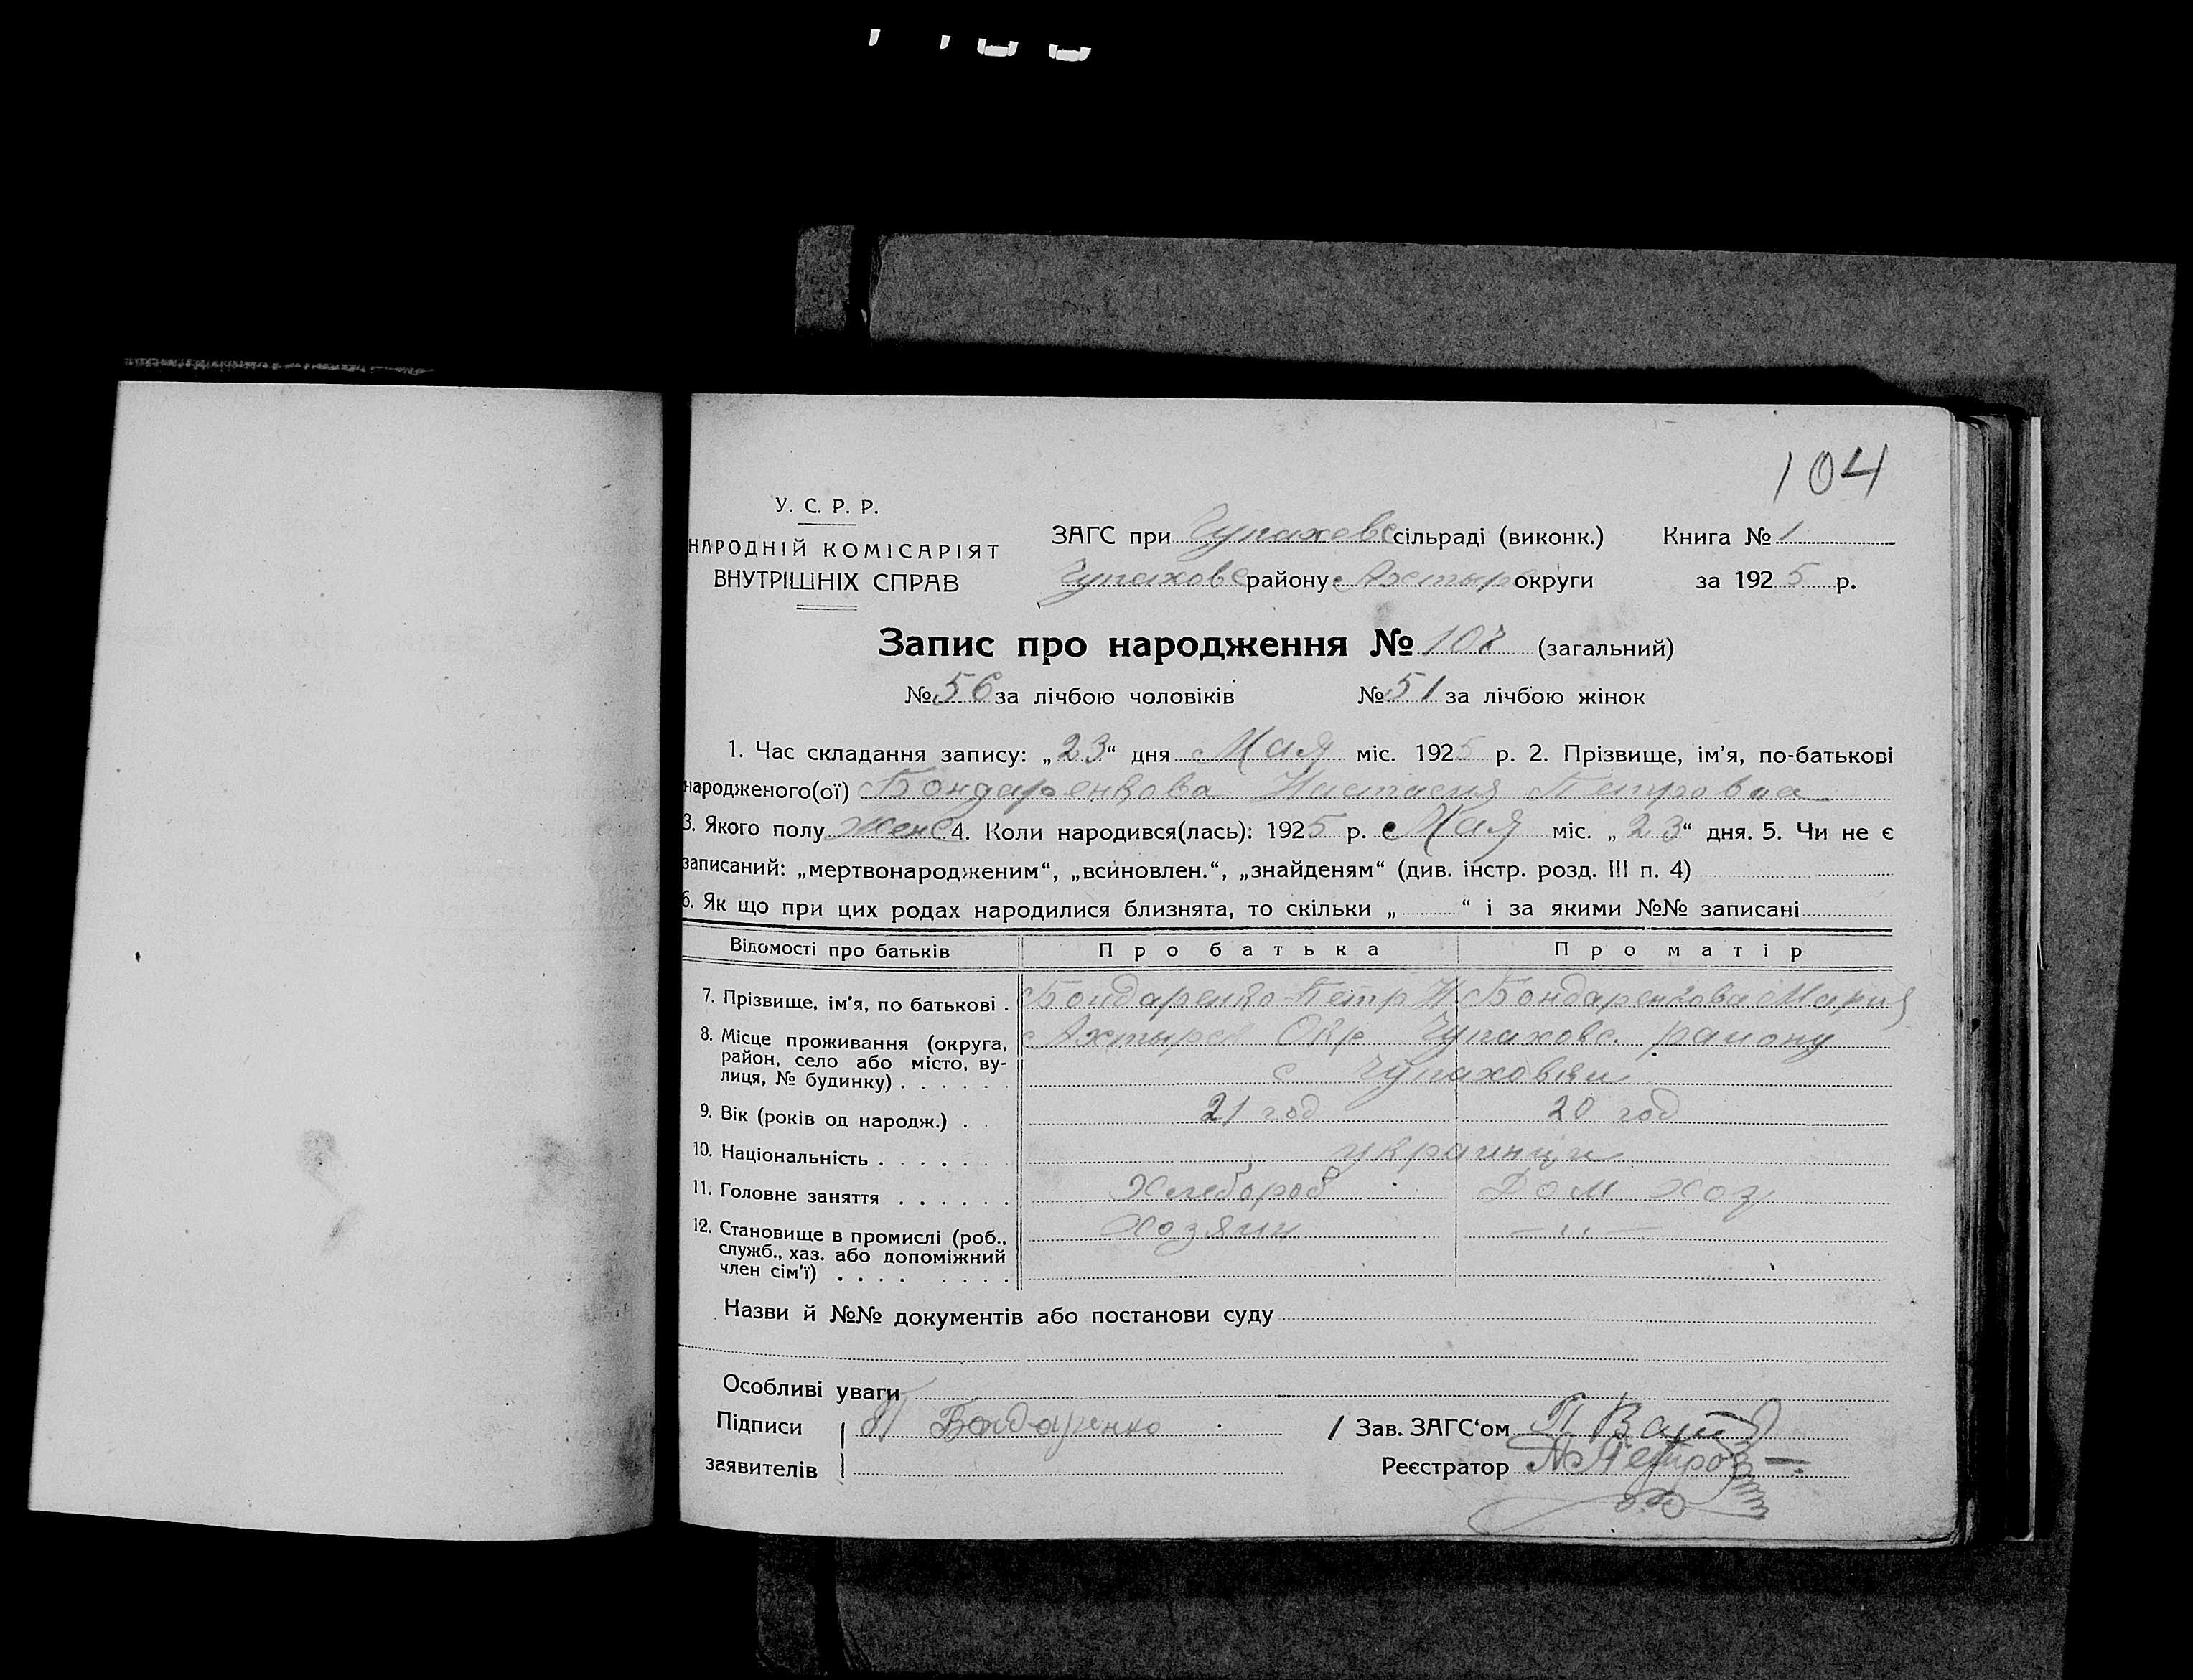 104
У. С. Р. Р.
НАРОДНІЙ КОМІСАРІЯТ
ВНУТРІШНІХ СПРАВ
ЗАГС при Чупаховс сільраді (виконк.) Книга № 1
Чупаховс району Ахтыр округи за 1925 р.
Запис про народження № 107 (загальний)
№ 56 за лічбою чоловіків № 51 за лічбою жінок
1. Час складання запису: „23“ дня Мая міс. 1925 р. 2. Прізвище, ім'я, по-батькові
народженого(ої) Бондаренкова Настасия Петровна
3. Якого полу женс 4. Коли народився(лась): 1925 р. Мая міс. „23“ дня. 5. Чи не є
записаний: „мертвонародженим“, „всиновлен.“, „знайденям“ (див. інстр. розд. III п. 4)
6. Як що при цих родах народилися близнята, то скільки „ “ і за якими №№ записані
Відомості про батьків Про батька Про матір
7. Прізвище, ім'я, по батькові . Бондаренко Петр И Бондаренкова Мария
8. Місце проживання (округа, Ахтырс Окр Чупаховс. району
район, село або місто, ву-
лиця, № будинку) . . . . . . с Чупаховки
9. Вік (років од народж.) . . 21 год 20 год
10. Національність . . . . . . украинци
11. Головне заняття . . . . . . Хлебороб Дом хоз
12. Становище в промислі (роб., хозяин — „ —
служб., хаз. або допоміжний
член сім'ї) . . . . . . . .
Назви й №№ документів або постанови суду
Особливі уваги
Підписи Бондаренко Зав. ЗАГС'ом
заявителів Реєстратор